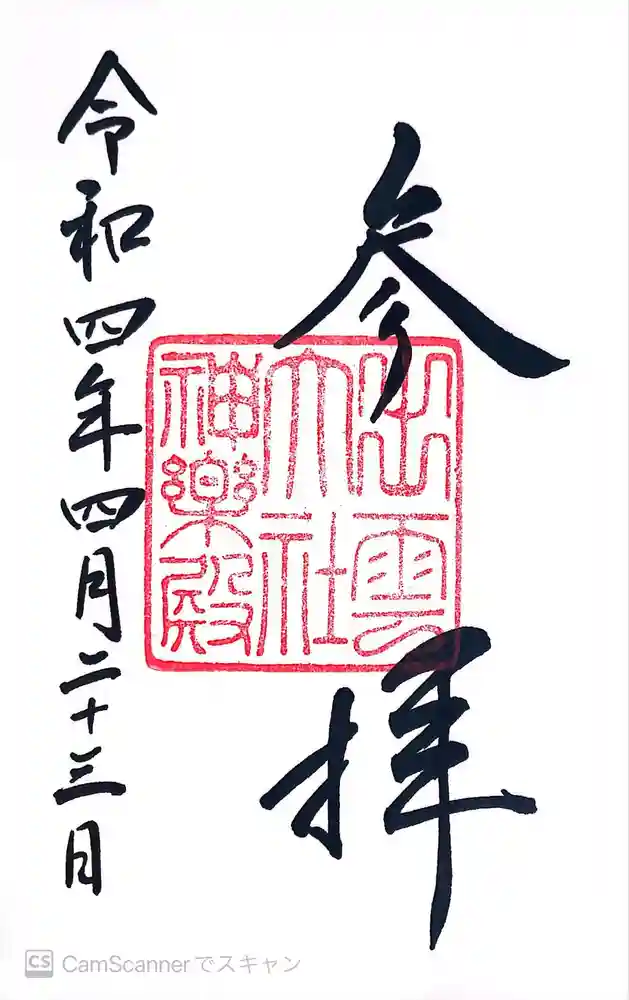 参拝
出雲
大社
神楽殿
令和四年四月二十三日
CS CamScannerでスキャン